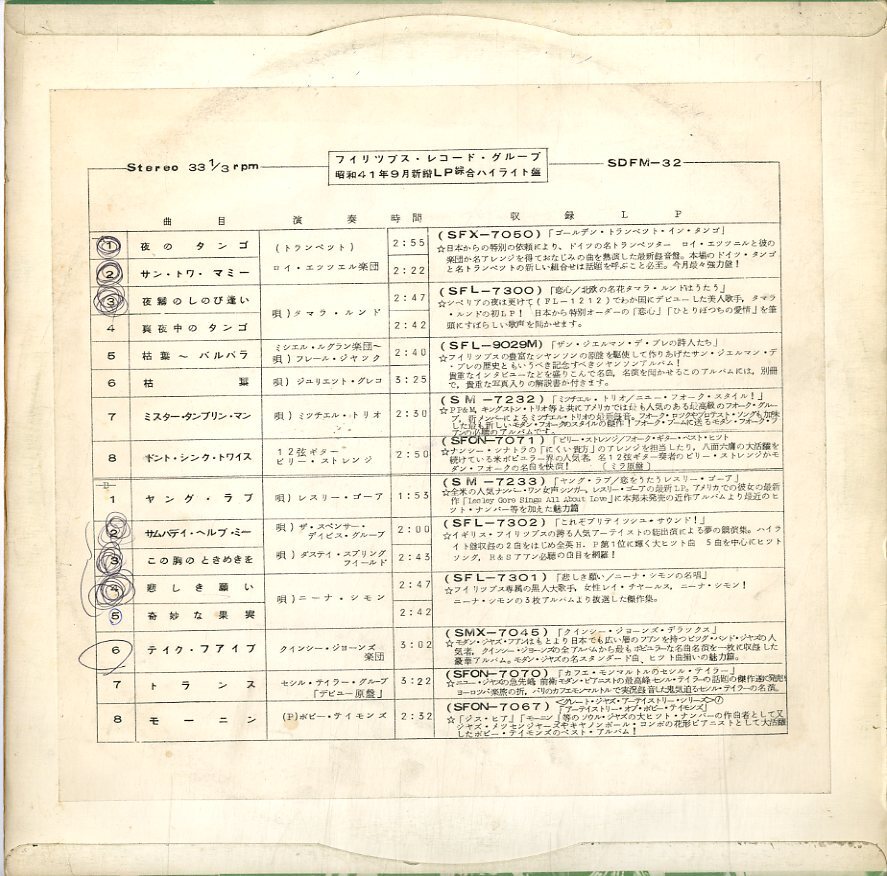 Stereo 33 1/3 rpm
フイリツプス・レコード・グループ
昭和41年9月新譜LP綜合ハイライト盤
SDFM-32
曲目 演奏 時間 収録LP
1 夜のタンゴ (トランペット) 2:55
2 サン・トワ・マミー ロイ・エツツエル楽団 2:22
(SFX-7050)「ゴールデン・トランペット・イン・タンゴ」
☆日本からの特別の依頼により、ドイツの名トランペッター ロイ・エツツエルと彼の
楽団が名アレンジを得ておなじみの曲を熱演した最新録音盤。本場のドイツ・タンゴ
と名トランペットの新しい組合せは話題を呼ぶこと必至。今月最々強力盤!
3 夜霧のしのび逢い 2:47
唄)タマラ・ルンド
4 真夜中のタンゴ 2:42
(SFL-7300)「恋心/北欧の名花タマラ・ルンドはうたう」
☆シベリアの夜は更けて(FL-1212)でわか国にデビューした美人歌手,タマラ
・ルンドの初LP! 日本から特別オーダーの「恋心」「ひとりぼつちの愛情」を筆
頭にすばらしい歌声を聞かせます。
5 枯葉〜バルバラ ミシエル・ルグラン楽団〜 2:40
唄)フレール・ジヤック
6 枯葉 唄)ジユリエット・グレコ 3:25
(SFL-9029M)「ザン・ジエルマン・デ・プレの詩人たち」
☆フイリツプスの豊富なシヤンソンの原盤を駆使して作りあげたサン・ジエルマン・デ
・プレの歴史ともいうべき記念すべきシヤンソンアルバム!
貴重なインタビューなどを盛りこんで名曲,名演を聞かせるこのアルバムには,別冊
で,貴重な写真入りの解説書が付きます。
7 ミスター・タンブリン・マン 唄)ミツチエル・トリオ 2:30
(SM-7232)「ミツチエル・トリオ/ニュー・フォーク・スタイル!」
☆PP&M,キングストン・トリオ等と共にアメリカでは最も人気のある最高級のフォーク・グルー
プ,新メンバーによるミツチエル・トリオの最新録音。フォーク・ロックやプロテスト・ソングも加味
した最も新しいモダン・フォークのスタイルの傑作!フォーク・ブームに送るモダン・フォーク・フ
アンの必聴のアルバムです。
8 ドント・シンク・トワイス 12弦ギター 2:50
ビリー・ストレンジ
(SFON-7071)「ビリー・ストレンジ/フォーク・ギター・ベスト・ヒット
☆ナンシー・シナトラの「にくい貴方」のアレンジを担当したり,八面六臂の大活躍を
続けている米ポピュラー界の人気者,名12弦ギター奏者のビリー・ストレンジかモ
ダン・フォークの名曲を快演! [ミラ原盤]
1 ヤング・ラブ 唄)レスリー・ゴーア 1:53
(SM-7233)「ヤング・ラブ/恋をうたうレスリー・ゴーア」
☆全米の人気ナンバー・ワン女声シンガー,レスリー・ゴーアの最新LP。アメリカでの彼女の最新
作「Lesley Gore Sings All About Love」に本邦未発売の近作アルバムより最近のヒ
ット・ナンバー等を加えた魅力篇
2 サムバディ・ヘルプ・ミー 唄)ザ・スペンサー・ 2:00
デイビス・グループ
3 この胸のときめきを 唄)ダスティ・スプリング 2:43
フイールド
(SFL-7302)「これぞブリテイツシユ・サウンド!」
☆イギリス・フイリツプスの誇る人気アーテイストの総出演による夢の饗演集。ハイラ
イト盤収録の2曲をはじめ全英H.P第1位に輝く大ヒット曲 5曲を中心にヒット
ソング,R&Sフアン必聴の曲目を網羅!
4 悲しき願い 2:47
唄)ニーナ・シモン
5 奇妙な果実 2:42
(SFL-7301)「悲しき願い/ニーナ・シモンの名唱」
☆フイリツプス専属の黒人大歌手,女性レイ・チヤールス,ニーナ・シモン!
ニーナ・シモンの3枚アルバムより抜選した傑作集。
6 テイク・フアイブ クインシー・ジョーンズ 3:02
楽団
(SMX-7045)「クインシー・ジョーンズ・デラックス」
☆モダン・ジャズ・フアンはもとより日本でも広い層のフアンを持つビッグ・バンド・ジャズの人
気者,クインシー・ジョーンズの全アルバムから最もポピュラーな名曲名演を一枚に収録した
豪華アルバム。モダン・ジャズの名スタンダード曲,ヒット曲揃いの魅力篇。
7 トランス セシル・テイラー・グループ 3:22
「デビュー原盤」
(SFON-7070)「カフェ・モンマルトルのセシル・テイラー」
☆ニュー・ジャズの急先鋒,前衛モダン・ピアニストの最高峰セシル・テイラーの話題の傑作遂に発売!
ヨーロッパ楽旅の折,パリのカフエモンマルトルで実況録音した鬼気迫るセシル・テイラーの名演。
8 モーニン (P)ボビー・テイモンズ 2:32
(SFON-7067)<グレート・ジャズ・アーテイストリー・シリーズ>①
「アーテイストリー・オブ・ボビー・テイモンズ」
☆「ジス・ヒア」「モーニン」等のソウル・ジャズの大ヒット・ナンバーの作曲者として又
ジャズ・メッセンジャーズやキヤノンボール・コンボの花形ピアニストとして大活躍
したボビー・テイモンズのベスト・アルバム!